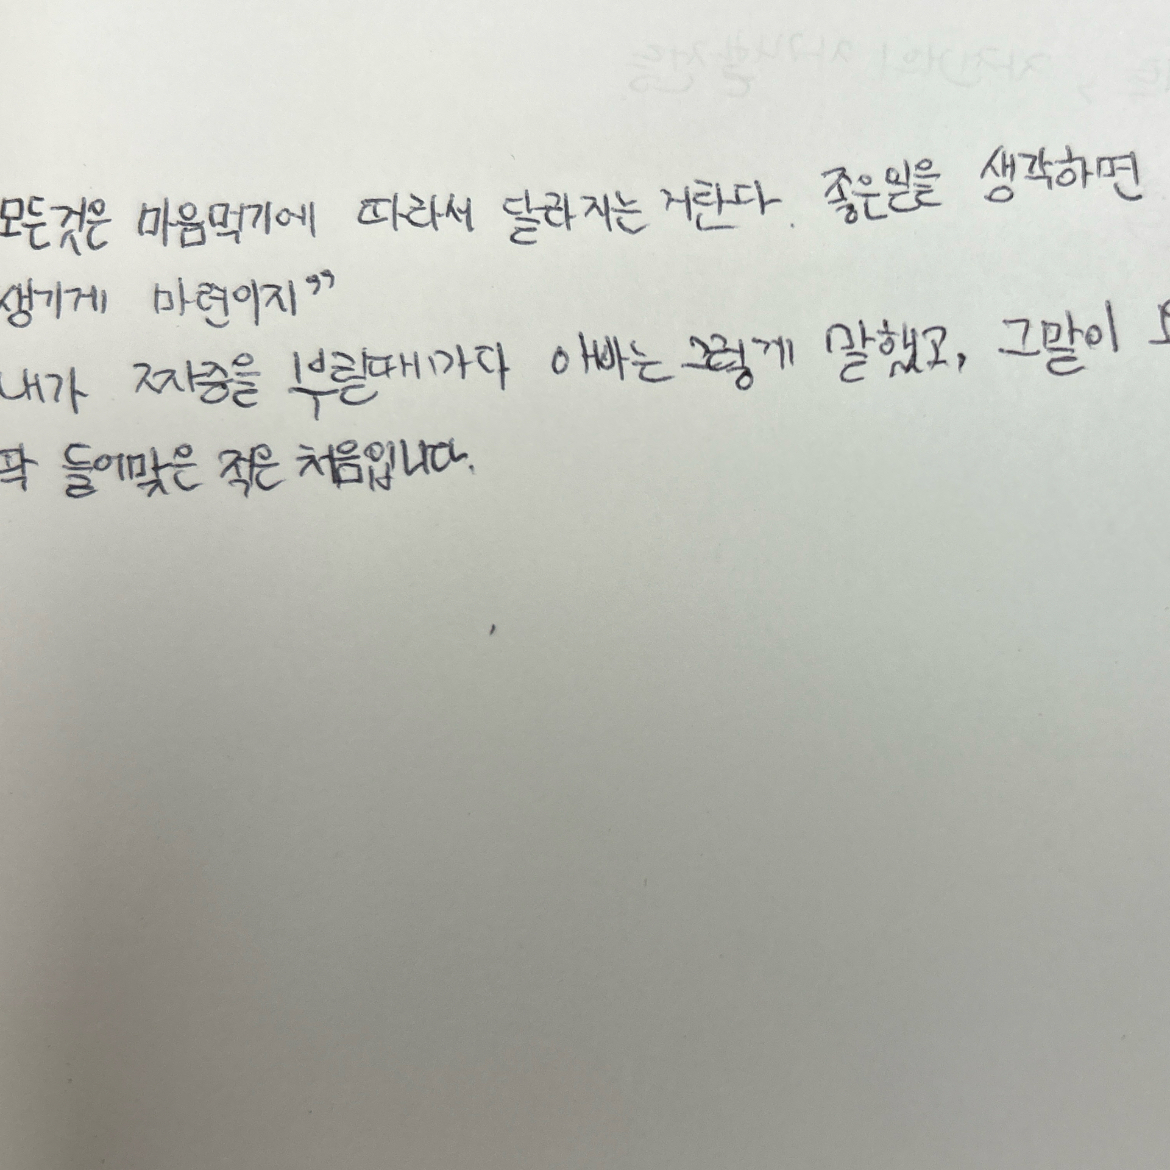 모든것은 마음먹기에 따라서 달라지는 거란다. 좋은일을 생각하면
생기게 마련이지”
내가 짜증을 부릴때마다 아빠는 그렇게 말했고, 그말이
팍 들어맞은 적은 처음입니다.